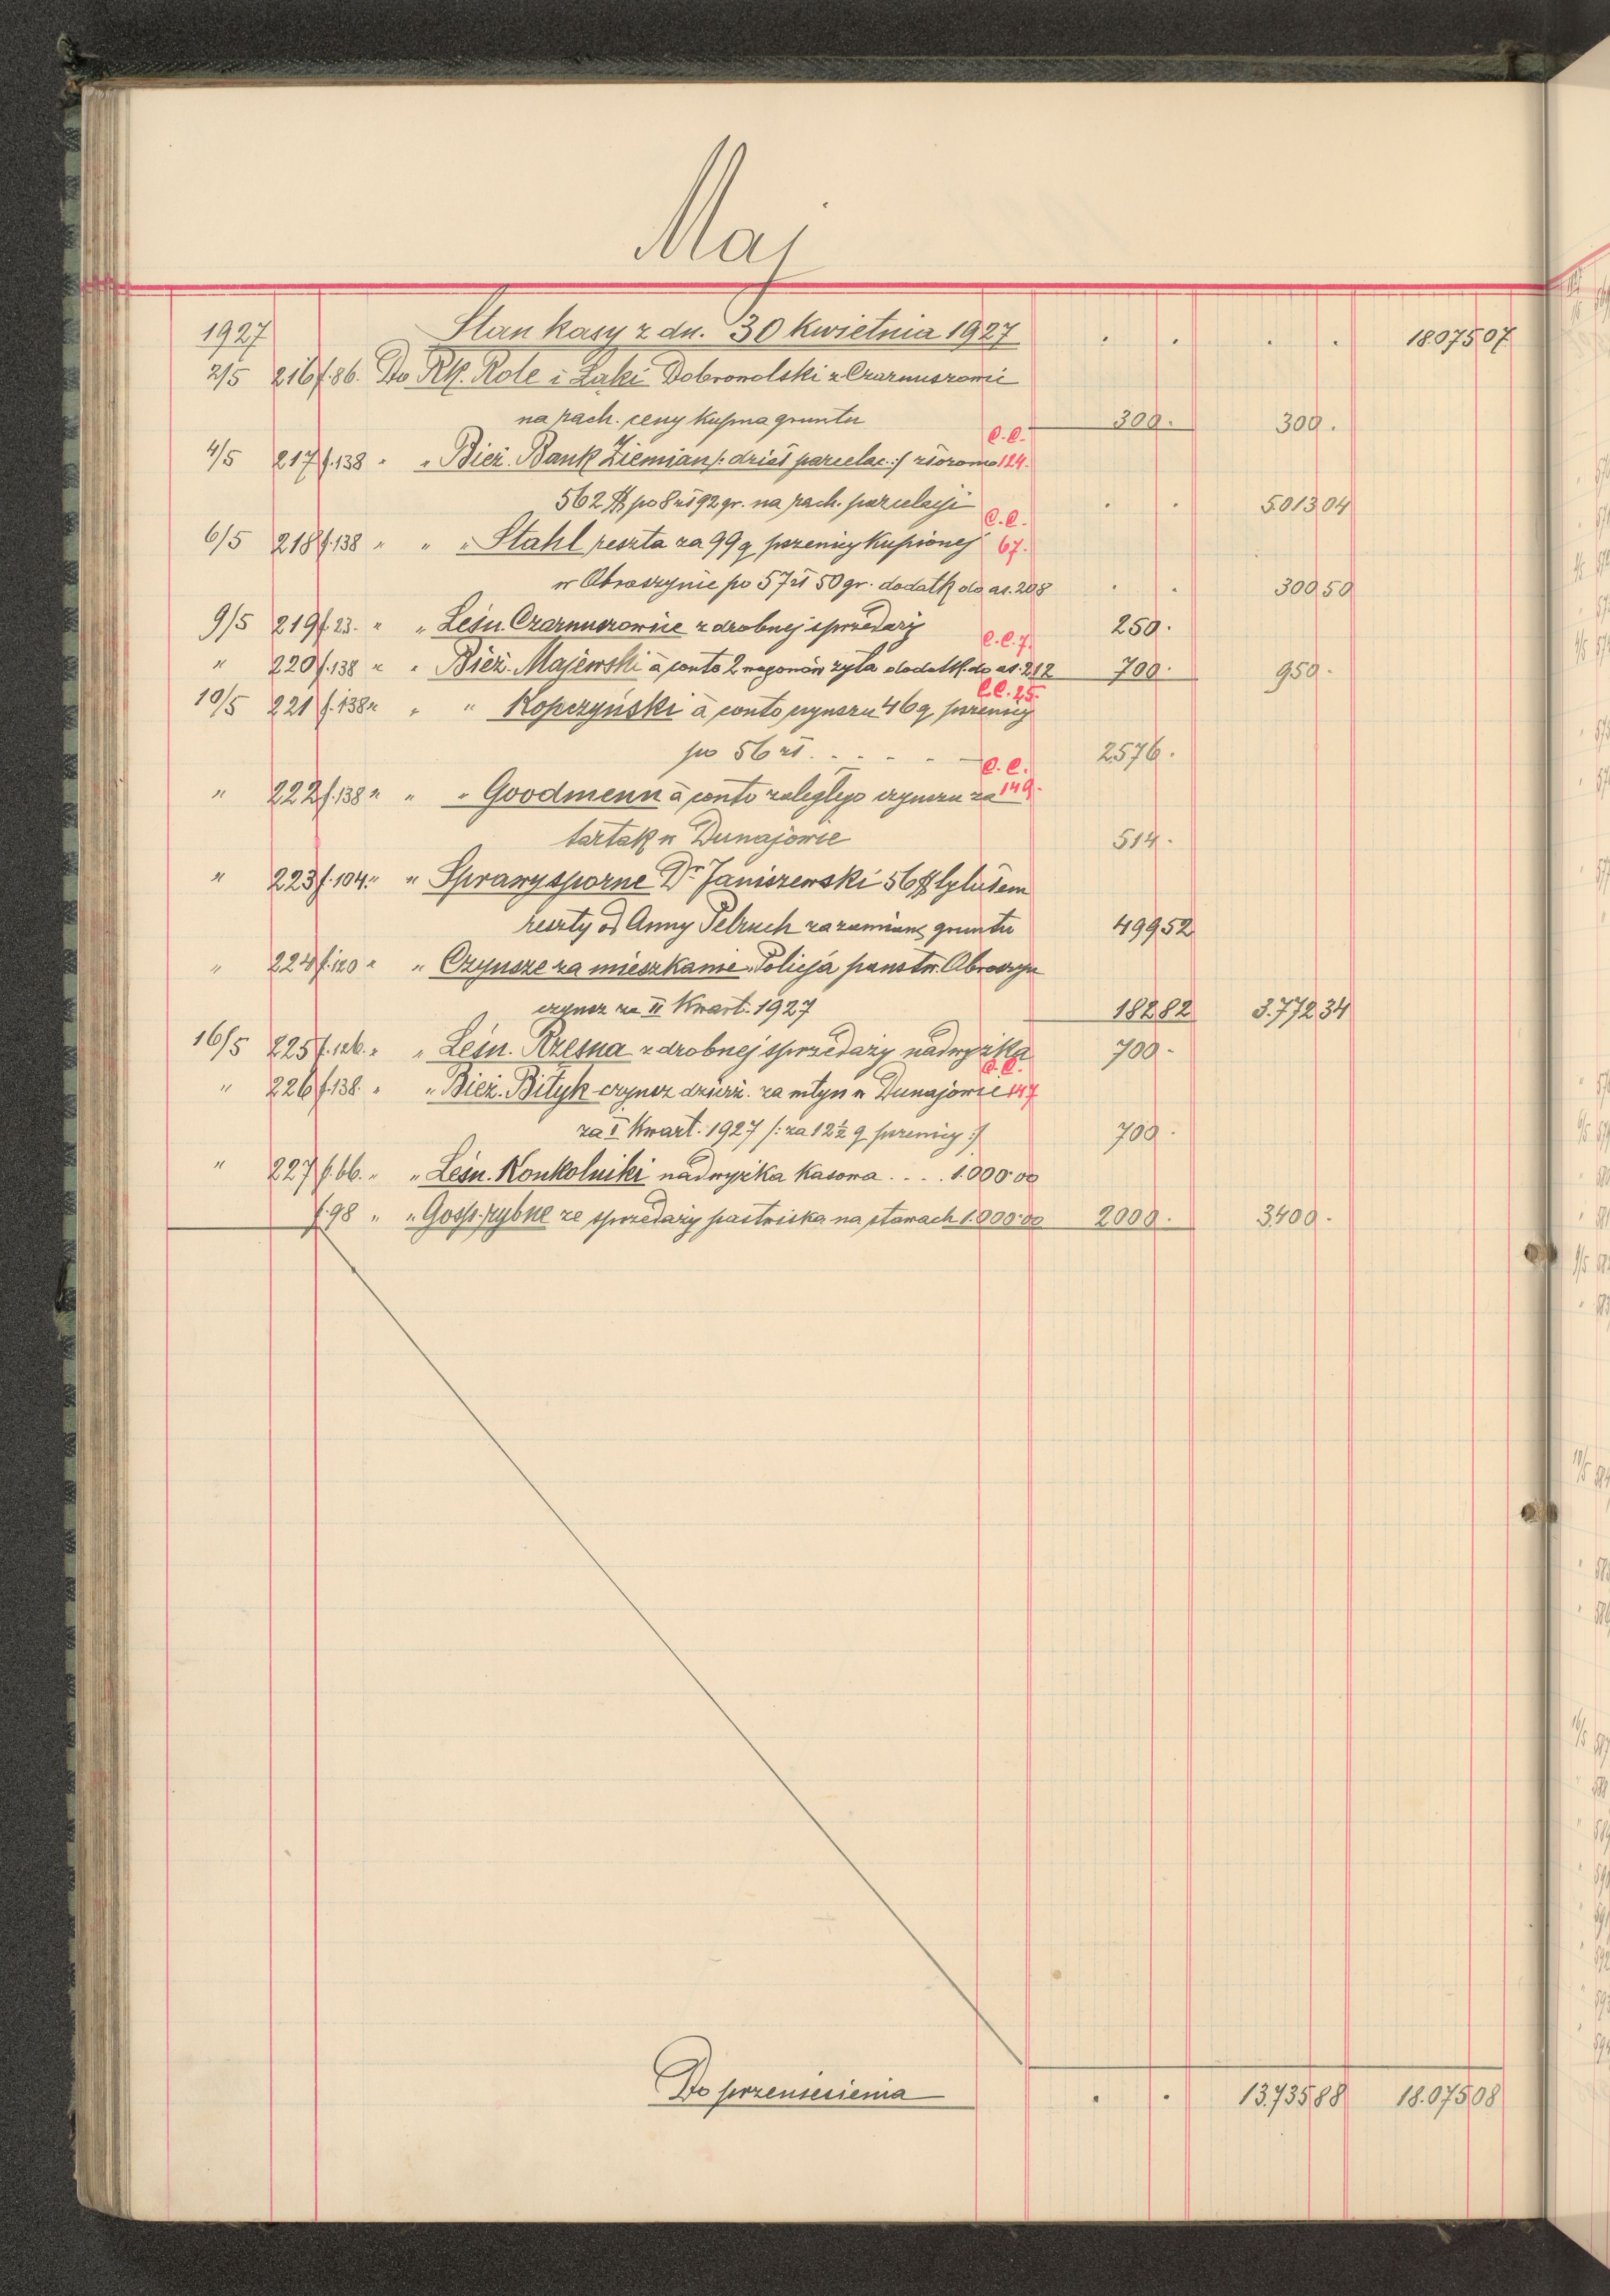 Maj
1927 Stan kasy z dn. 30 kwietnia 1927 . . . . 18.075 07
2/5 216 f. 86. Do Rk. Role i Łąki Dobrowolski z Czarnuszowic
na rach. ceny kupna gruntu 300. 300.
C.C.
4/5 217 f. 138 " " Bież. Bank Ziemian /: dział parcelac :/ złożono 124.
562 $ po 8 zł 92 gr. na rach. parcelacji . . 5.013 04
C.C.
6/5 218 f. 138 " " " Stahl reszta za 99 q pszenicy kupionej 67.
w Obroszynie po 57 zł 50 gr. dodatk do as. 208 . . 300 50
9/5 219 f. 23. " " Leśn. Czarnuszowice z drobnej sprzedaży 250.
C.C. 7.
" 220 f. 138 " " Bież. Majewski à conto 2 wagonów żyta dodatk. do as. 212 700. 950.
C.C. 25.
10/5 221 f. 138 " " " Kopczyński à conto czynszu 46 q pszenicy
po 56 zł. . . . . 2576.
C.C.
" 222 f. 138 " " " Goodmenn à conto zaległego czynszu za 149.
tartak w Dunajowie 514.
" 223 f. 104. " " Sprawy sporne Dr Janiszewski 56 $ tytułem
reszty od Anny Petruch za zamianę gruntu 499 52
" 224 f. 120 " " Czynsze za mieszkanie Policja państw. Obroszyn
czynsz za II Kwart. 1927 182 82 3.772 34
16/5 225 f. 126. " " Leśn. Rzesna z drobnej sprzedaży nadwyżka 700.
C.C.
" 226 f. 138. " " Bież. Bityk czynsz dzierż. za młyn w Dunajowie 147
za I Kwart. 1927 /: za 12 ½ q pszenicy :/ 700.
" 227 f. 66. " " Leśn. Konkolniki nadwyżka kasowa . . . . 1.000.00
f. 98 " " Gosp. rybne ze sprzedaży pastwiska na stawach 1.000.00 2000. 3.400.
Do przeniesienia . . 13.735 88 18.075 08